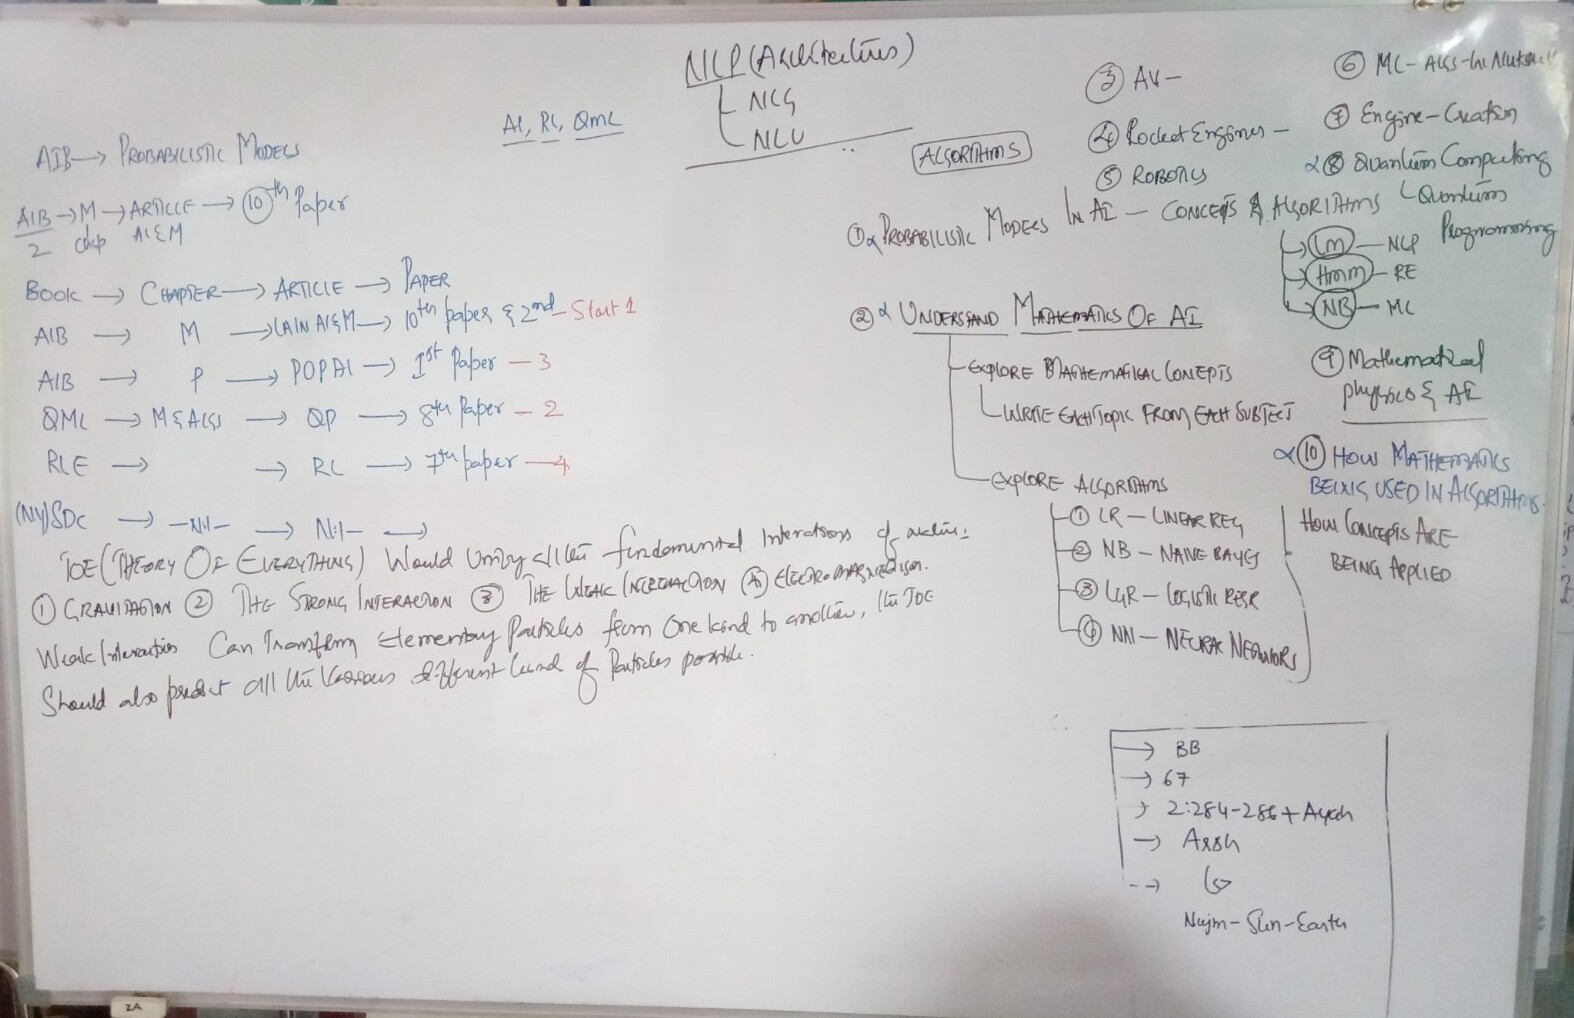 NLP (Architectures)
NLG
NLU
AI, RL, QML
AIB → PROBABILISTIC MODELS
AIB → M → ARTICLE → 10th Paper
2 chap AI&M
BOOK → CHAPTER → ARTICLE → PAPER
AIB → M → LAIN AI&M → 10th paper & 2nd - Start 1
AIB → P → POPAI → 1st Paper - 3
QML → M & ALGS → QP → 8th Paper - 2
RLE → → RL → 7th paper - 4
(NY)SDC → -Nil- → Nil- →
TOE (THEORY OF EVERYTHING) Would Unify all the fundamental Interactions of nature:
① GRAVITATION ② THE STRONG INTERACTION ③ THE WEAK INTERACTION ④ ELECTROMAGNETISM.
Weak Interaction Can Transform Elementary Particles from One kind to another, the TOE
Should also predict all the Various different kind of Particles possible.
ALGORITHMS
③ AV -
④ Rocket Engines -
⑤ ROBOTICS
⑥ ML - ALGS - In Nutshell
⑦ Engine - Creation
α ⑧ Quantum Computing
Quantum
Programming
① α PROBABILISTIC MODELS IN AI - CONCEPTS & ALGORITHMS
LM - NLP
HMM - RE
NB - ML
② α UNDERSTAND MATHEMATICS OF AI
EXPLORE MATHEMATICAL CONCEPTS
WRITE EACH TOPIC FROM EACH SUBJECT
EXPLORE ALGORITHMS
① LR - LINEAR REG
② NB - NAIVE BAYES
③ LGR - LOGISTIC REGR
④ NN - NEURAL NETWORKS
HOW CONCEPTS ARE
BEING APPLIED
⑨ Mathematical
physics & AI
α ⑩ HOW MATHEMATICS
BEING USED IN ALGORITHMS
→ BB
→ 67
→ 2:284-286 + Ayah
→ Arsh
Nujm - Sun - Earth
2A